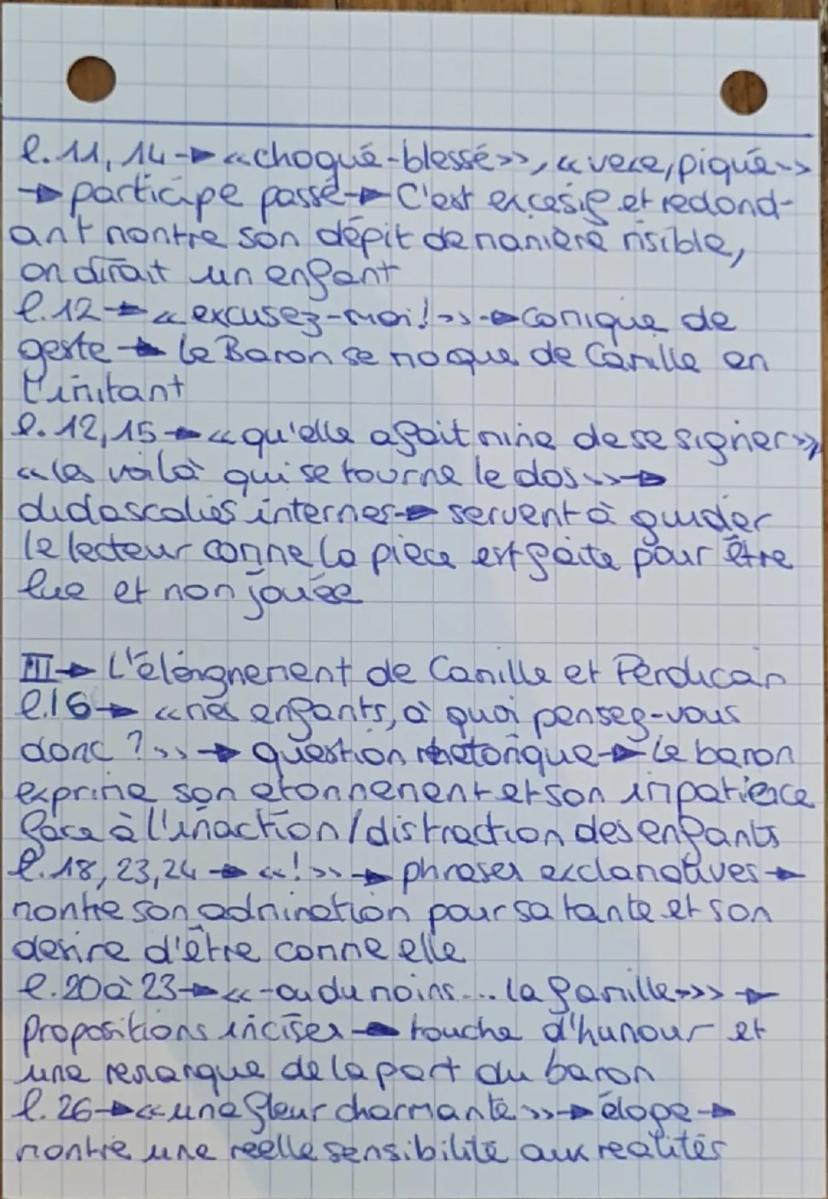 l.11, 14 → «choqué-blessé», «vexe, piqué»
→ participe passé → C'est excesif et redond-
ant montre son dépit de manière risible,
on dirait un enfant
l.12 → «excusez-moi!» → comique de
geste → le Baron se moque de Camille en
l'imitant
l.12, 15 → «qu'elle a fait mine de se signer»
«les voilà qui se tourne le dos» →
didascalies internes → servent à guider
le lecteur comme la pièce est faite pour être
lue et non jouée
III → L'éloignement de Camille et Perdican
l.16 → «mes enfants, à quoi pensez-vous
donc ?» → question rhetorique → Le baron
exprime son etonnement et son impatience
face à l'inaction/distraction des enfants
l.18, 23, 24 → «!» → phrases exclamatives →
montre son admiration pour sa tante et son
desire d'être comme elle
l.20 à 23 → «-ou du moins... la famille-» →
propositions incises → touche d'humour et
une remarque de la part du baron
l.26 → «une fleur charmante» → éloge →
montre une réelle sensibilité aux realités